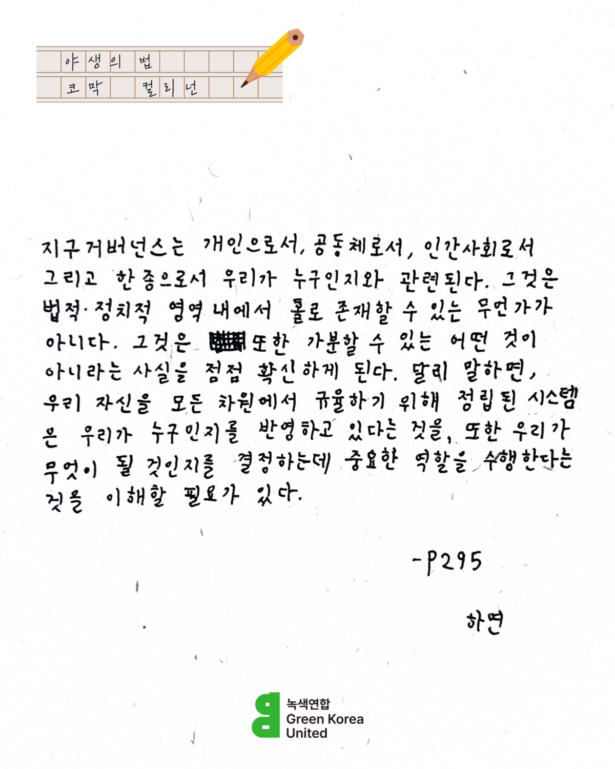 야생의 법
코막 컬리넌
지구거버넌스는 개인으로서, 공동체로서, 인간사회로서
그리고 한 종으로서 우리가 누구인지와 관련된다. 그것은
법적·정치적 영역 내에서 홀로 존재할 수 있는 무언가가
아니다. 그것은 또한 가분할 수 있는 어떤 것이
아니라는 사실을 점점 확신하게 된다. 달리 말하면,
우리 자신을 모든 차원에서 규율하기 위해 정립된 시스템
은 우리가 누구인지를 반영하고 있다는 것을, 또한 우리가
무엇이 될 것인지를 결정하는데 중요한 역할을 수행한다는
것을 이해할 필요가 있다.
-P295
하연
녹색연합
Green Korea
United